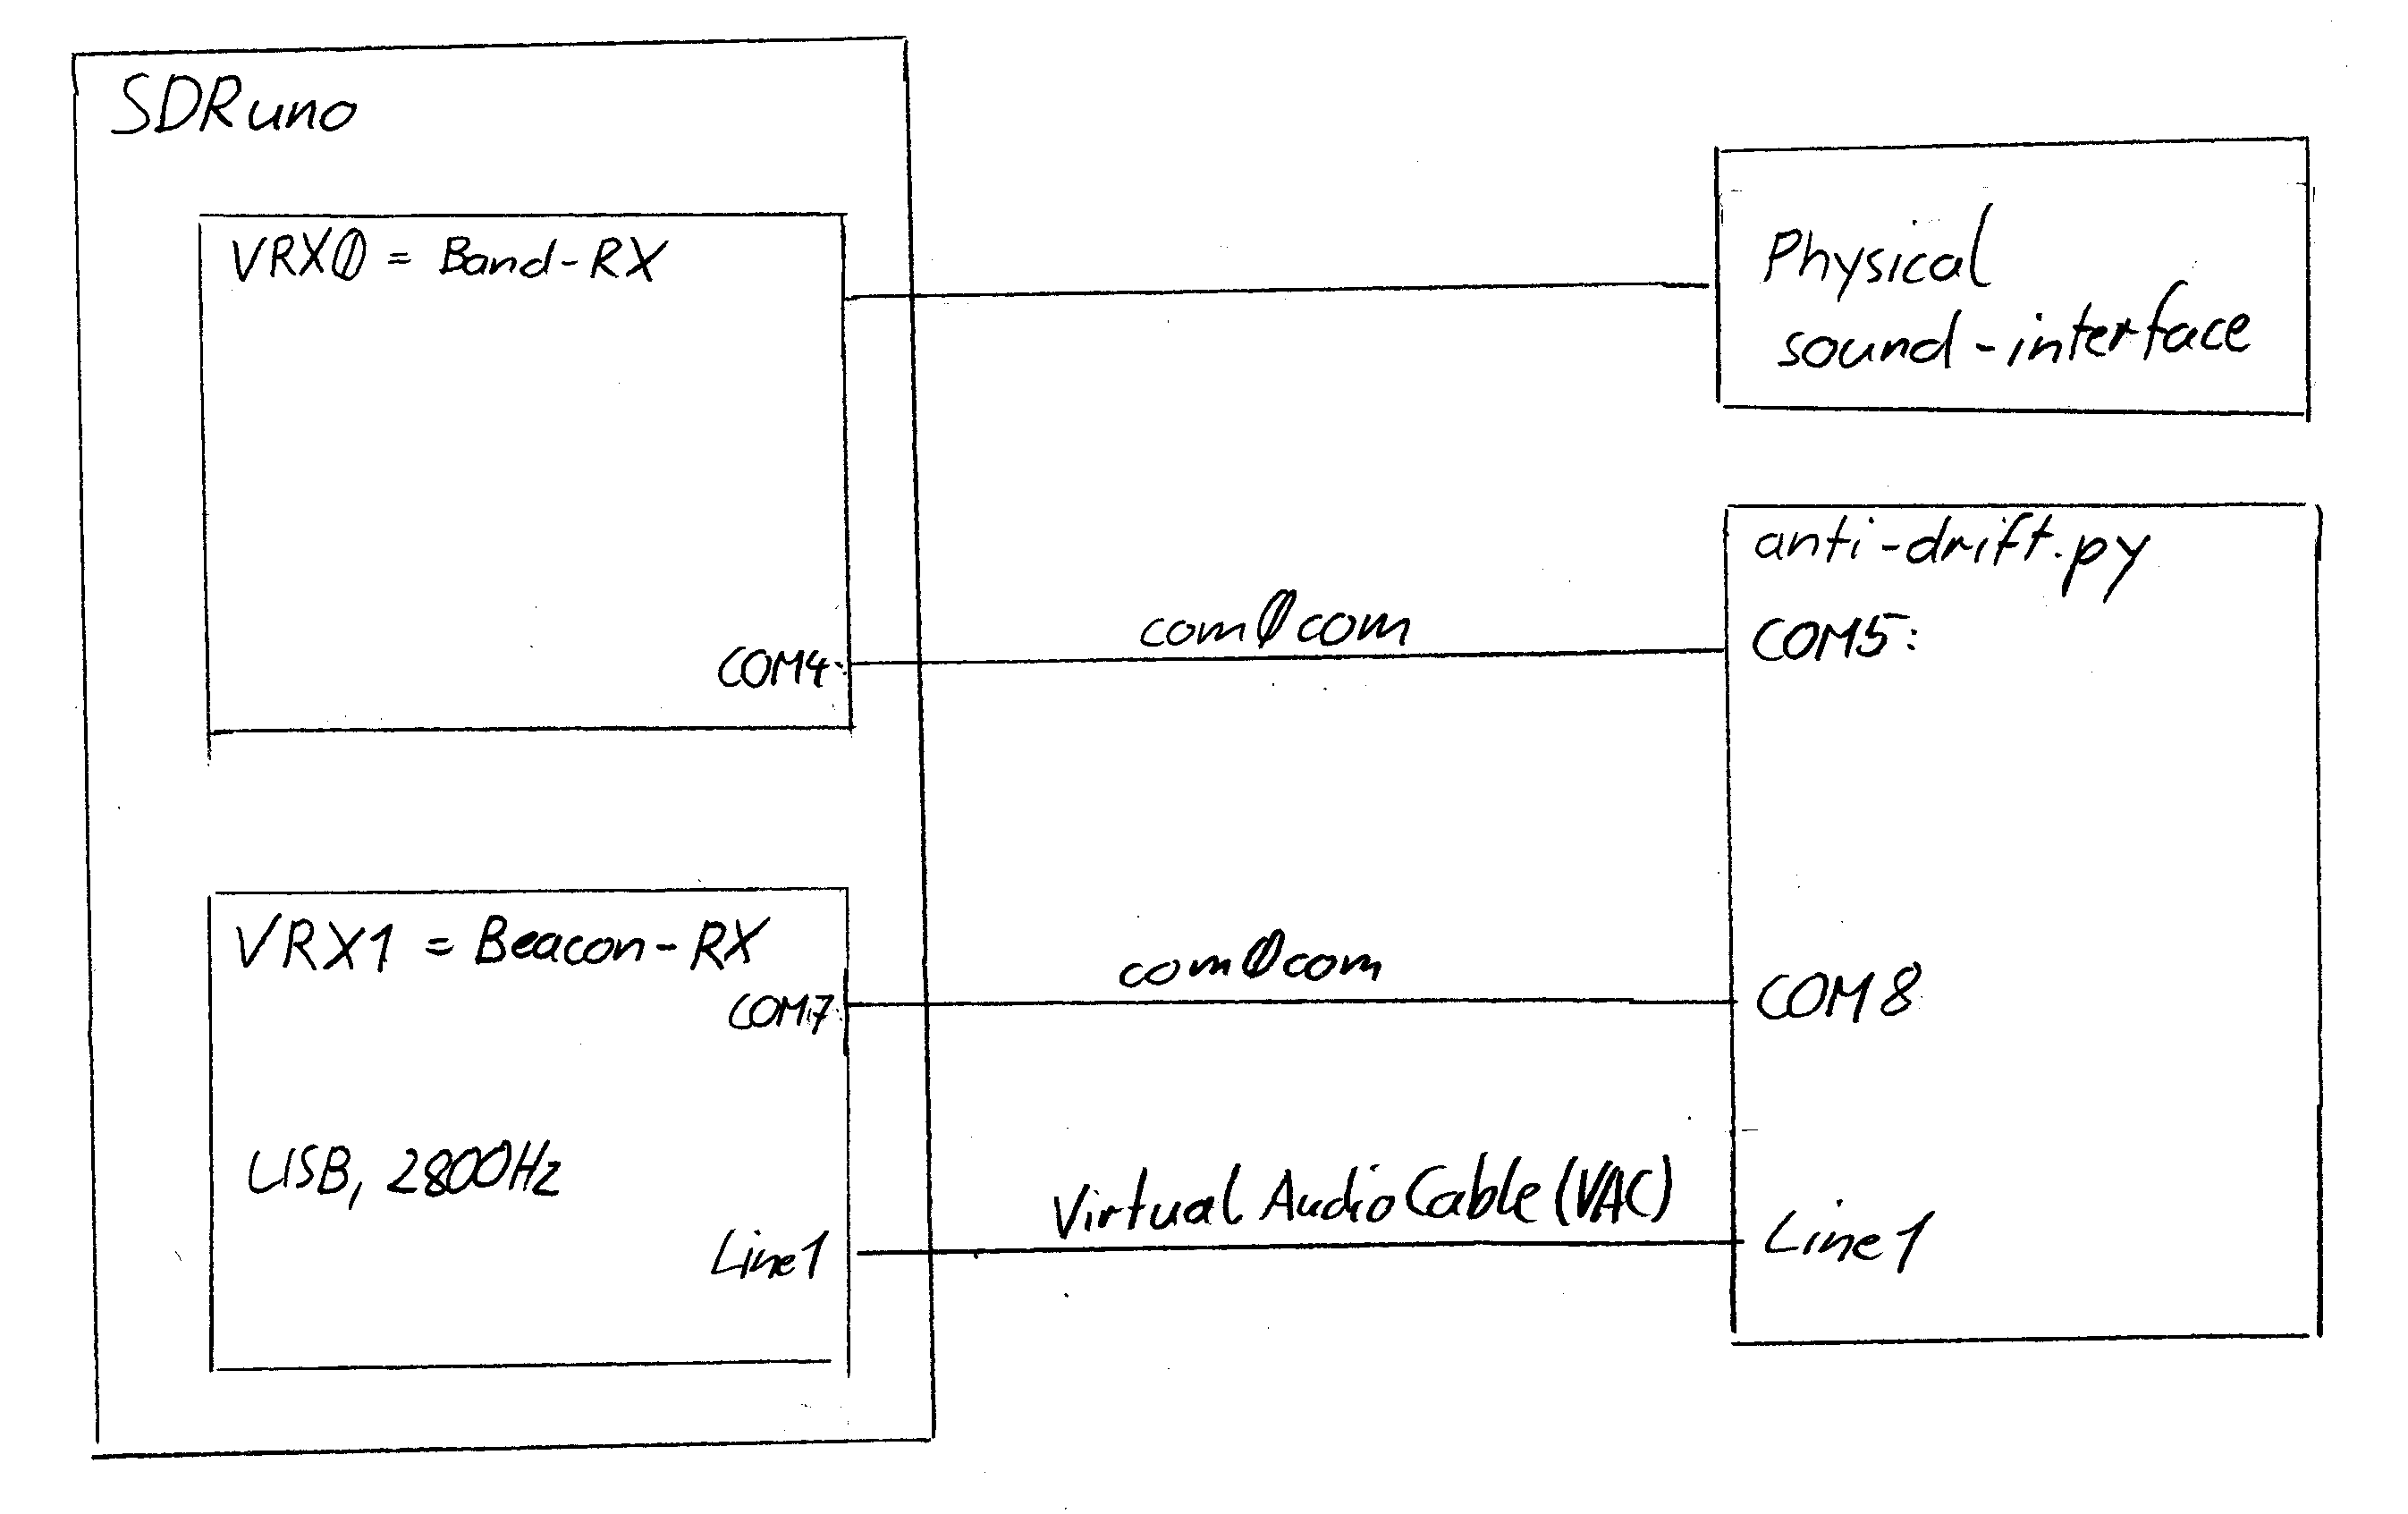 SDRuno
VRX0 = Band-RX
Physical
sound-interface
anti-drift.py
com0com
COM5:
COM4
VRX1 = Beacon-RX
com0com
COM7
COM8
USB, 2800Hz
Virtual Audio Cable (VAC)
Line1
Line1